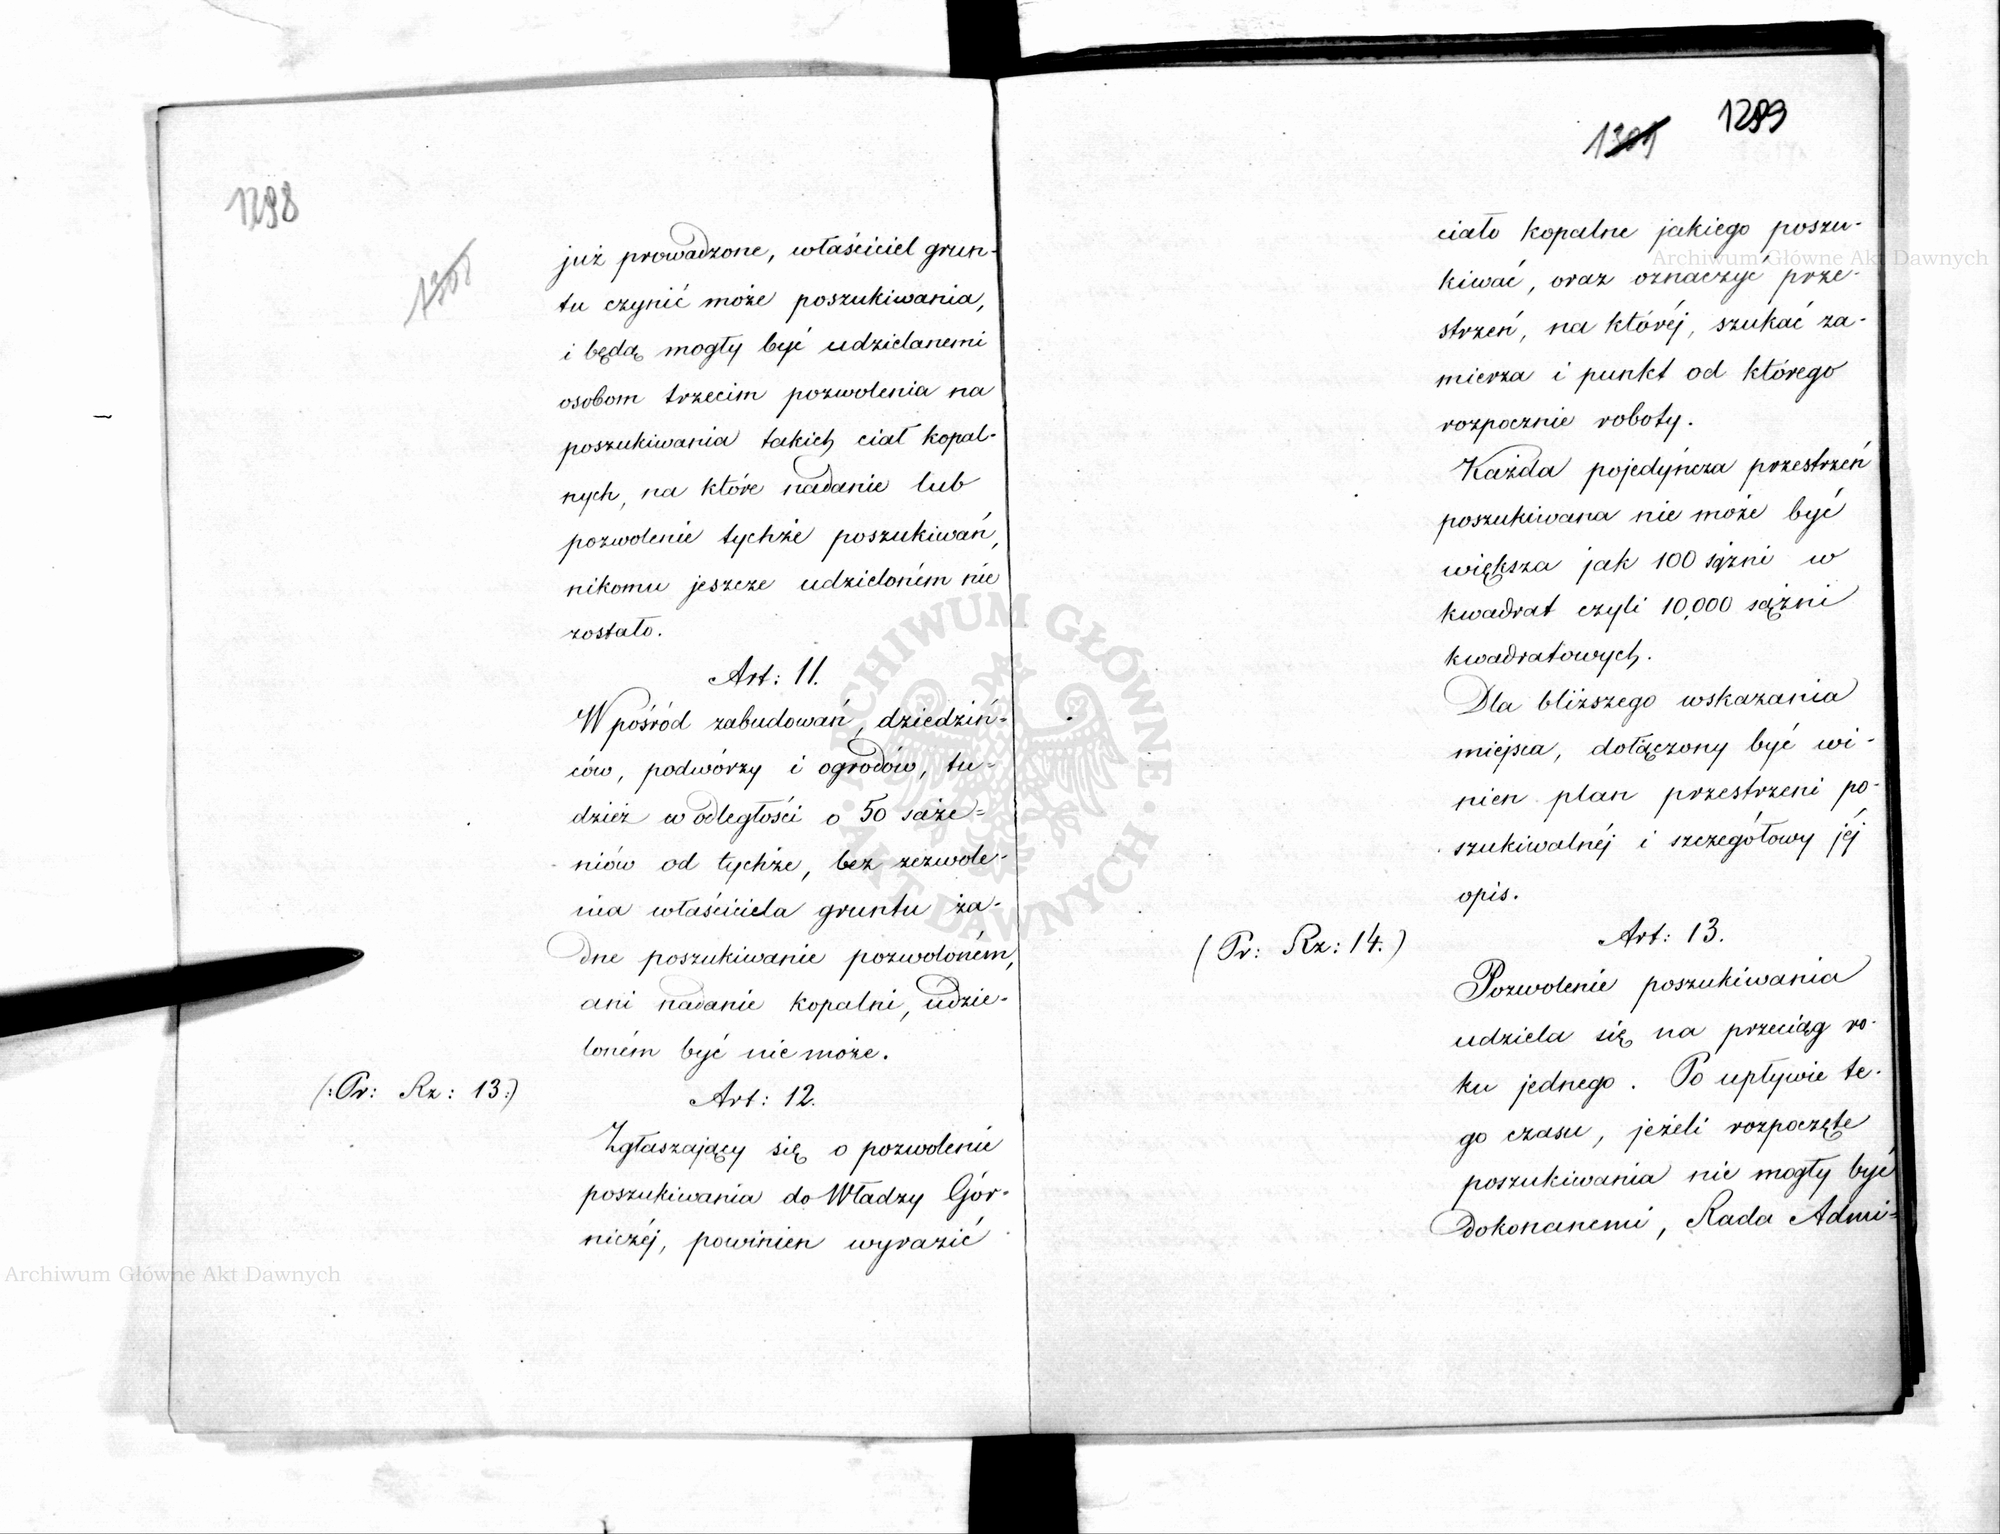 1298
już prowadzone, właściciel grun-
tu czynić może poszukiwania,
i będą mogły być udzielanemi
osobom trzecim pozwolenia na
poszukiwania takich ciał kopal-
nych, na które nadanie lub
pozwolenie tychże poszukiwań,
nikomu jeszcze udzieloném nie
zostało.
Art: 11.
Wpośród zabudowań, dziedziń=
ców, podwórzy i ogrodów, tu=
dzież w odległości o 50 sąże=
niów od tychże, bez zezwole-
nia właściciela gruntu ża-
dne poszukiwanie pozwoloném,
ani nadanie kopalni, udzie-
loném być nie może.
(:Pr: Rz: 13:)
Art: 12.
Zgłaszający się o pozwolenie
poszukiwania do Władzy Gór-
niczéj, powinien wyrazić
1301
1299
ciało kopalne jakiego poszu-
kiwać, oraz oznaczyć prze-
strzeń, na któréj, szukać za-
mierza i punkt od którego
rozpocznie roboty.
Każda pojedyńcza przestrzeń
poszukiwana nie może być
większa jak 100 sążni w
kwadrat czyli 10,000 sążni
kwadratowych.
Dla bliższego wskazania
miejsca, dołączony być wi-
nien plan przestrzeni po-
szukiwalnéj i szczegółowy jéj
opis.
(Pr: Rz: 14.)
Art: 13.
Pozwolenie poszukiwania
udziela się na przeciąg ro-
ku jednego. Po upływie te-
go czasu, jeżeli rozpoczęte
poszukiwania nie mogły być
dokonanemi, Rada Admi=
Archiwum Główne Akt Dawnych
Archiwum Główne Akt Dawnych
ARCHIWUM GŁÓWNE
AKT DAWNYCH